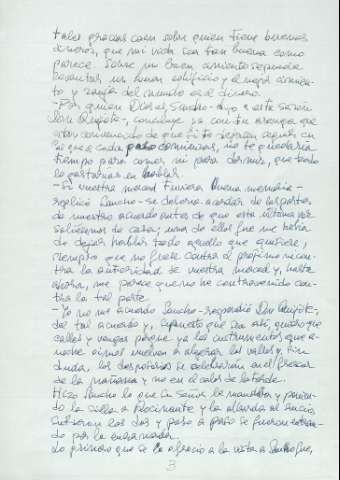 tales gracias caen sobre quien tiene buenos
dineros, que mi vida sea tan buena como
parece. Sobre un buen cimiento se puede
levantar un buen edificio, y el mejor cimien-
to y zanja del mundo es el dinero.
-Por quien Dios es, Sancho -dijo a esta sazón
Don Quijote-, concluye ya con tu arenga que
estoy convencido de que si te dejasen seguir en
la que a cada paso comienzas, no te quedaría
tiempo para comer ni para dormir, que todo
lo gastarías en hablar.
-Si vuestra merced tuviera buena memoria-
replicó Sancho- se debería acordar de las partes
de nuestro acuerdo antes de que esta última vez
saliésemos de casa; uno de ellos fue me había
de dejar hablar todo aquello que quisiere,
siempre que no fuese contra el prójimo ni con-
tra la autoridad de vuestra merced y, hasta
ahora, me parece que no he contravenido con-
tra la tal parte.
-Yo no me acuerdo Sancho -respondió Don Quijote-
del tal acuerdo y, supuesto que sea así, quiero que
calles y vengas porque ya los instrumentos que a-
noche oímos vuelven a alegrar los valles y, sin
duda, los desposorios se celebrarán en el frescor
de la mañana y no en el calor de la tarde.
Hizo Sancho lo que su señor le mandaba y ponien-
do la silla a Rocinante y la albarda al rucio,
subieron los dos y paso a paso se fueron entran-
do por la enramada.
Lo primero que se le ofreció a la vista a Sancho fue,
3